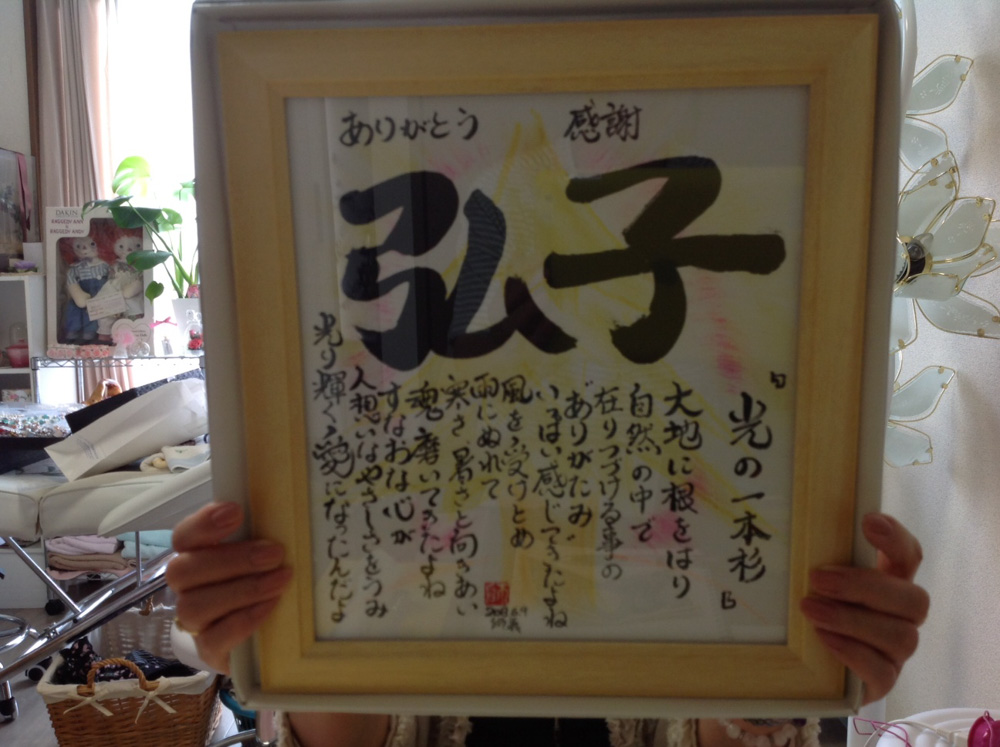 ありがとう
感謝
弘子
『光の一本杉』
大地に根をはり
自然の中で
在りつづける事の
ありがたみ
いっぱい感じてきたよね
風を受けとめ
雨にぬれて
寒さ、暑さと向きあい
魂磨いてきたよね
すなおな心が
人想いなやさしさをうみ
光り輝く愛になったんだよ
DAKIN
RAGGEDY ANN
RAGGEDY ANDY